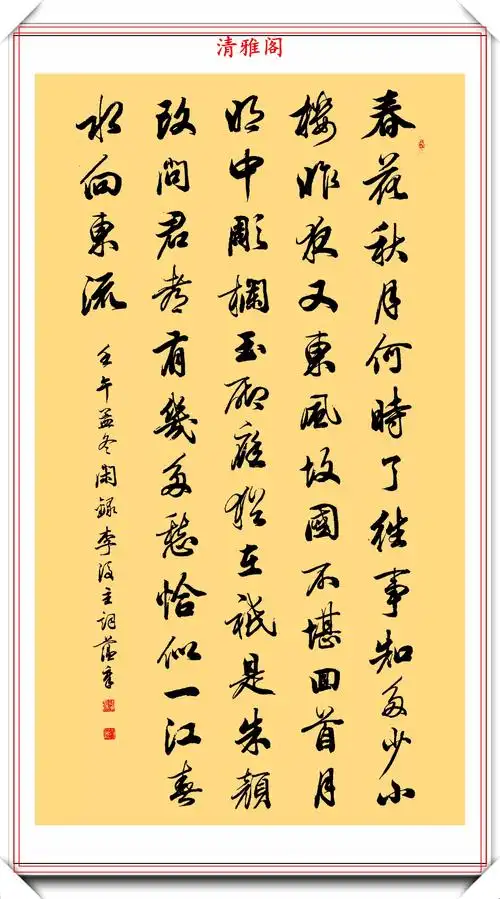 清雅阁
春花秋月何時了往事知多少小
樓昨夜又東風故國不堪回首月
明中彫欄玉砌應猶在祇是朱顏
改問君都有幾多愁恰似一江春
水向東流
壬午孟冬閑録李後主詞